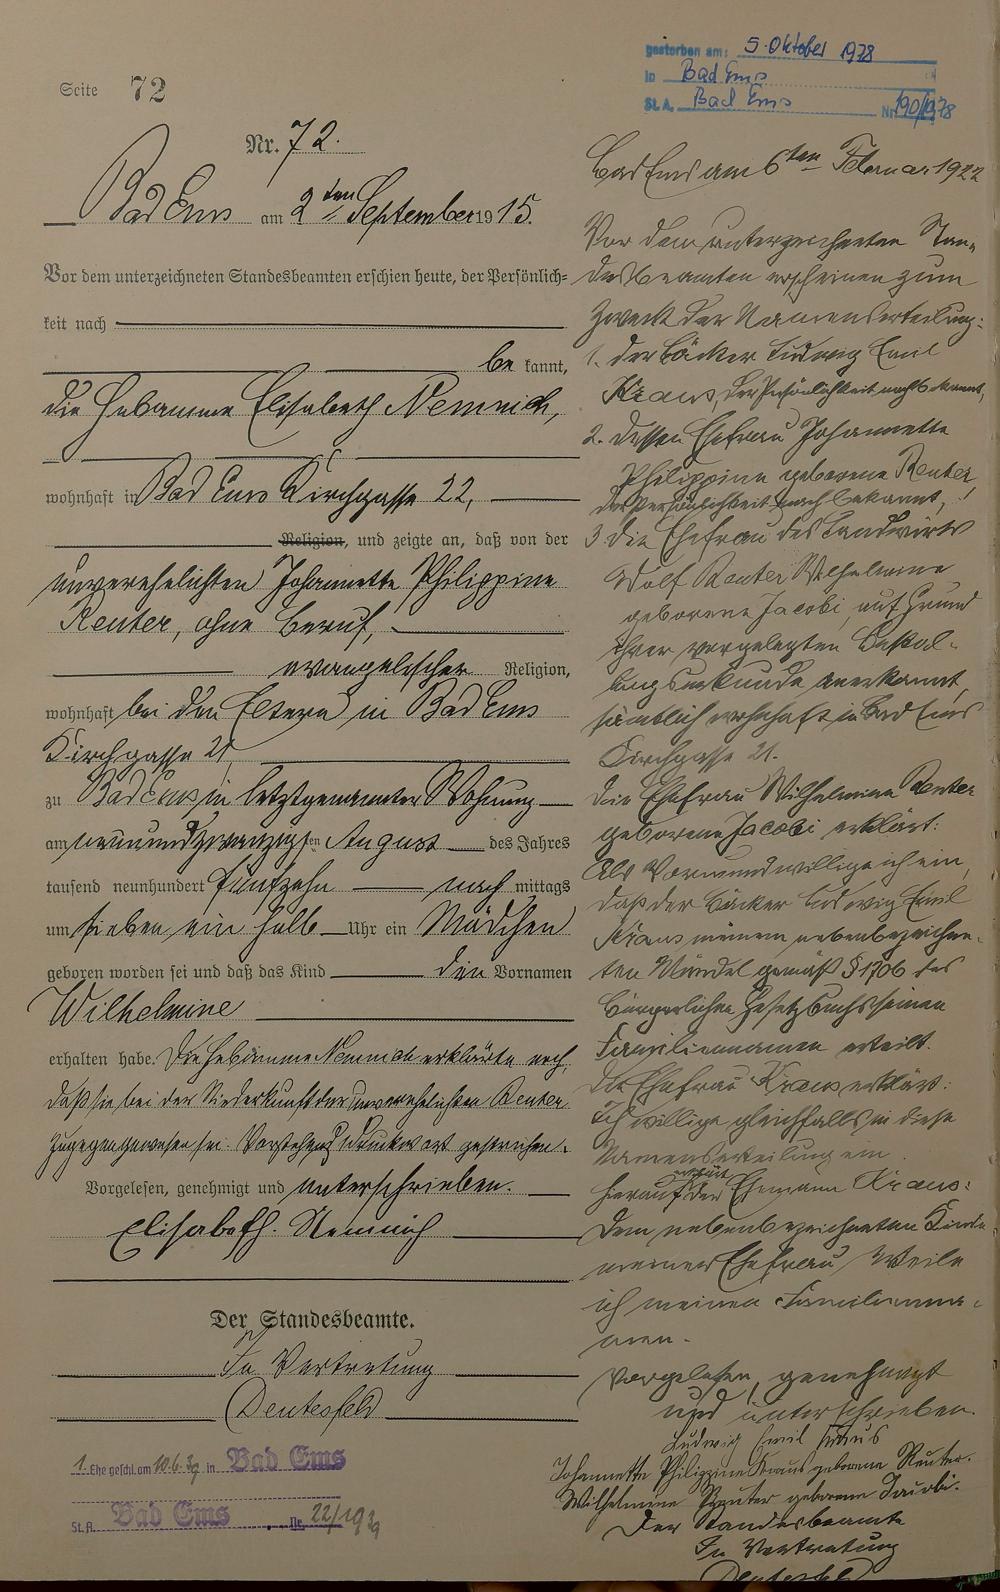 Seite 72
Nr. 72.
Bad Ems am 2ten September 1915.
Vor dem unterzeichneten Standesbeamten erschien heute, der Persönlich=
keit nach
be kannt,
die Hebamme Elisabeth Nemnich,
wohnhaft in Bad Ems Kirchgasse 22,
Religion, und zeigte an, daß von der
unverehelichten Johannette Philippine
Reuter, ohne Beruf,
evangelischer Religion,
wohnhaft bei den Eltern in Bad Ems
Kirchgasse 21,
zu Bad Ems, in letztgenannter Wohnung
am neunundzwanzigsten August des Jahres
tausend neunhundert fünfzehn nach mittags
um sieben ein halb Uhr ein Mädchen
geboren worden sei und daß das Kind den Vornamen
Wilhelmine
erhalten habe. Die Hebamme Nemnich erklärte noch,
daß sie bei der Niederkunft der unverehelichten Reuter
zugegen gewesen sei. Vorstehend 1 Druckwort gestrichen.
Vorgelesen, genehmigt und unterschrieben.
Elisabeth Nemnich
Der Standesbeamte.
In Vertretung
1. Ehe geschl. am 10.6.39 in Bad Ems
St. A. Bad Ems Nr. 22/1939
gestorben am: 5. Oktober 1978
in Bad Ems
St. A. Bad Ems Nr. 190/1978
Bad Ems am 6ten Februar 1922
Vor dem unterzeichneten Stan=
desbeamten erscheinen zum
Zweck der Namenserteilung:
1. der Bäcker Ludwig Emil
Kraus, der Persönlichkeit nach bekannt,
2. dessen Ehefrau Johannette
Philippine geborene Reuter,
der Persönlichkeit nach bekannt,
3 die Ehefrau des Landwirts
Reuter Wilhelmine
geborene Jacobi, auf Grund
ihrer vorgelegten Bestal=
lungsurkunde anerkannt,
sämtlich wohnhaft in Bad Ems
Kirchgasse 21.
Die Ehefrau Wilhelmine Reuter
geborene Jacobi erklärt:
Als Vormund willige ich ein,
daß der Bäcker Ludwig Emil
Kraus meinem nebenbezeichne=
ten Mündel gemäß § 1706 des
Bürgerlichen Gesetzbuchs seinen
Familiennamen erteilt.
Die Ehefrau Kraus erklärt:
Ich willige gleichfalls in diese
Namenserteilung ein.
Hierauf erklärt der Ehemann Kraus:
Dem nebenbezeichneten Kinde
meiner Ehefrau erteile
ich meinen Familienna=
men.
Vorgelesen, genehmigt
und unterschrieben.
Ludwig Emil Kraus
Johannette Philippine Kraus geborene Reuter.
Wilhelmine Reuter geborene Jacobi.
Der Standesbeamte
In Vertretung